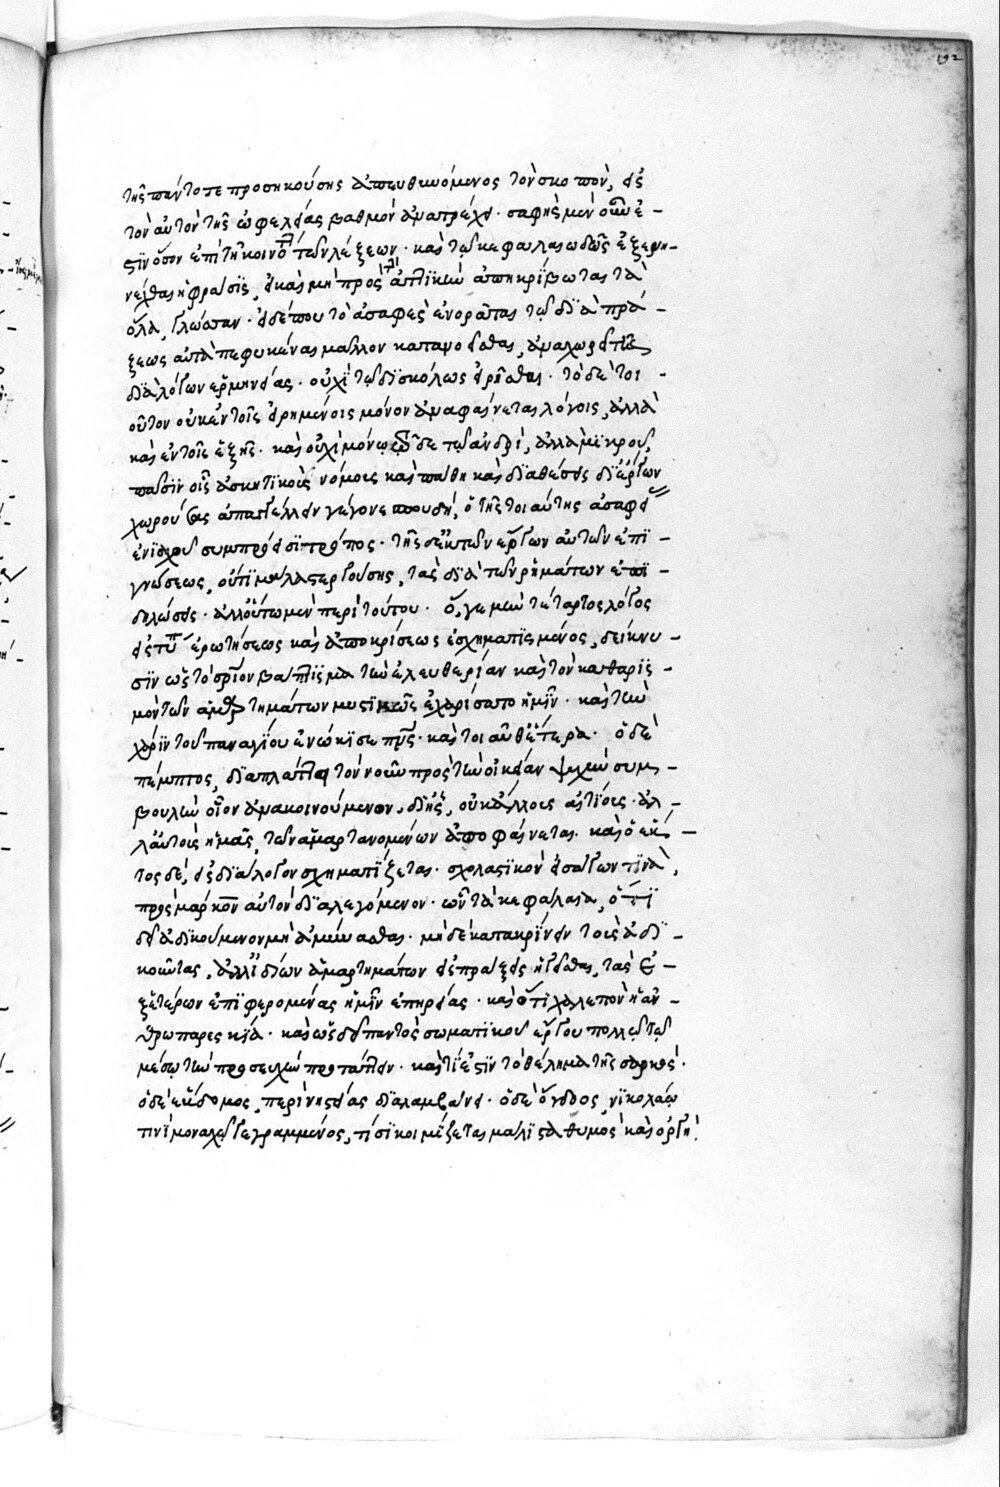 192
τῆς πάντοτε προσηκούσης ἀπευθυνόμενος τὸν σκοπὸν, εἰς
τὸν αὐτὸν τῆς ὠφελείας βαθμὸν ἀνατρέχει· σαφὴς μὲν οὖν ἐ-
στὶν ὅσον ἐπὶ τῆ κοινότητι τῶν λέξεων· καὶ τῷ κεφαλαιωδῶς ἐξενη-
νέχθαι ἡ φράσις, εἰ καὶ μὴ πρὸς ἀττικὴν ἀπηκρίβωται τὰ
ὅλα, γλῶτταν· εἰ δέ που τὸ ἀσαφὲς ἐνορᾶται τῷ διὰ πρά-
ξεως αὐτὰ πεφυκέναι μᾶλλον κατανοεῖσθαι, ἀναχωρεῖ τῆς
διὰ λόγων ἑρμηνείας· οὐχὶ τῷ δυσκόλως εἰρῆσθαι· τὸ δὲ τοι-
οῦτον οὐκ ἐν τοῖς εἰρημένοις μόνον ἀναφαίνεται λόγοις, ἀλλὰ
καὶ ἐν τοῖς ἑξῆς· καὶ οὐχὶ μόνῳ ὧδε τῷ ἀνδρὶ, ἀλλὰ μικροῦ,
πᾶσιν οἷς ἀσκητικοὺς νόμους καὶ πάθη καὶ διαθέσεις δι' ἔργων
χωρούσας ἀπαγγέλλειν γέγονε σπουδὴ, ὁ τῆς τοιαύτης ἀσαφεί
συμπρόεισι τρόπος· τῆς ἐκ τῶν ἔργων αὐτῶν ἐπι-
γνώσεως, τὰς διὰ τῶν ῥημάτων
δηλώσεις· ἀλλ' οὕτω μὲν περὶ τούτου· ὅ γε μὴν τέταρτος λόγος
ἐρωτήσεως καὶ ἀποκρίσεως ἐσχηματισμένος, δείκνυ-
σιν ὡς τὸ ἅγιον βάπτισμα τὴν ἐλευθερίαν καὶ τὸν καθαρισ-
μὸν τῶν ἁμαρτημάτων μυστικῶς ἐχαρίσατο ἡμῖν· καὶ τὴν
χάριν τοῦ παναγίου ἐνώκισε πνς· καί τοι αὖθις ἕτερα· ὁ δὲ
πέμπτος, διαπλάττει τὸν νοῦν πρὸς τὴν οἰκείαν ψυχὴν συμ-
βουλὴν οἷον ἀνακοινούμενον, δι' ἧς, οὐκ ἄλλοις αἰτίοις· ἀλ-
λ' αὐτοὺς ἡμᾶς, τῶν ἁμαρτανομένων ἀποφαίνεται· καὶ ὁ ἕκ-
τος δέ, εἰς διάλογον σχηματίζεται· σχολαστικὸν εἰσάγων τινὰ,
πρὸς μάρκον αὐτὸν διαλεγόμενον· ὧν τὰ κεφάλαια, ὅτι
δεῖ ἀδικούμενον μὴ ἀμύνασθαι· μηδὲ κατακρίνειν τοὺς ἀδι-
κοῦντας, ἀλλ' ἰδίων ἁμαρτημάτων εἰσπράξεις ἡγεῖσθαι, τὰς ἐ-
ξ ἑτέρων ἐπιφερομένας ἡμῖν ἐπηρείας· καὶ ὅτι χαλεπὸν ἡ ἀν-
θρωπαρεσκεία· καὶ ὡς δεῖ παντὸς σωματικοῦ ἔργου πολλῷ τῷ
μέσῳ τὴν προσευχὴν προτάττειν· καὶ τί ἐστιν τὸ θέλημα τῆς σαρκὸς·
ὁ δὲ ἕβδομος, περὶ νηστείας διαλαμβάνει· ὁ δὲ ὄγδοος, νικολάῳ
τινὶ μοναχῷ γεγραμμένος, τίσι κοιμίζεται μάλιστα θυμὸς καὶ ὀργὴ·